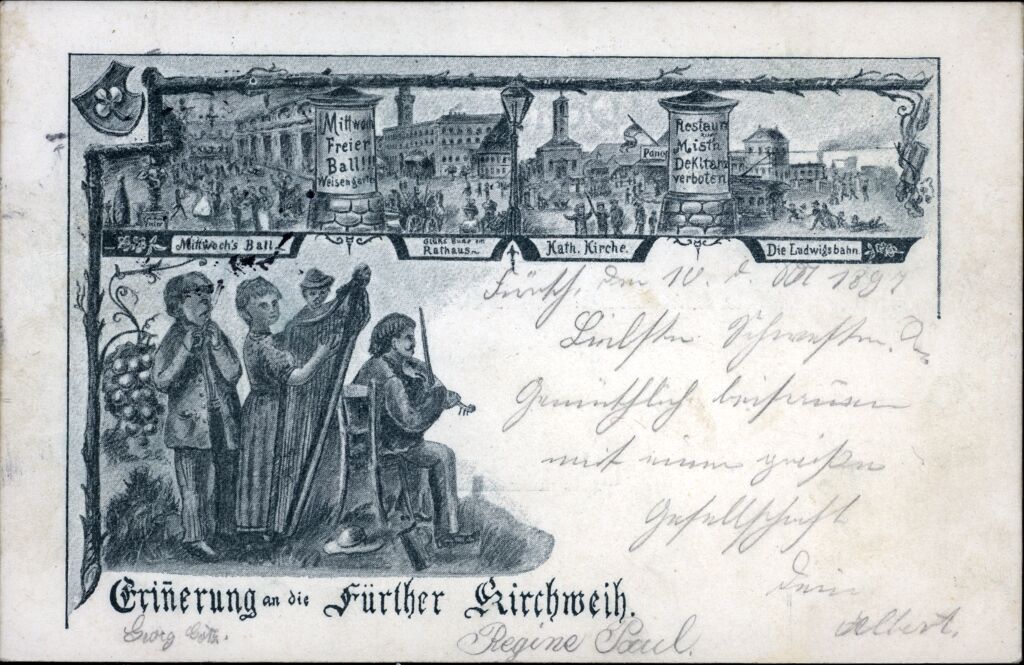 Mittwoch
Freier
Ball!!
Weisengarten
Pano
Restaur
zum
Mistb
Dekltam
verboten
Mittwoch's Ball.
Glüks Bude im
Rathaus
Kath. Kirche.
Die Ludwigsbahn
Fürth, den 10. d. Okt 1897
Liebste Schwester.
Gemüthlich beisamen
mit einer großen
Gesellschaft
Dein
Albert.
Eriñerung an die Fürther Kirchweih.
Georg Götz.
Regine Paul.